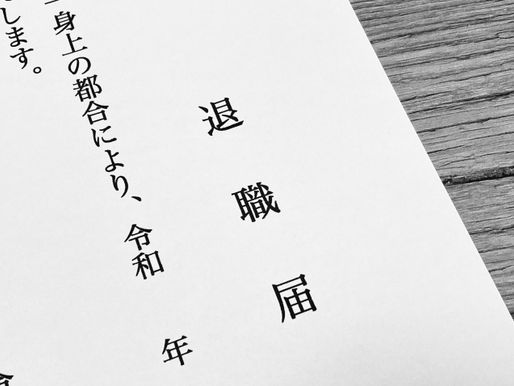 退職届
一身上の都合により、令和 年
します。